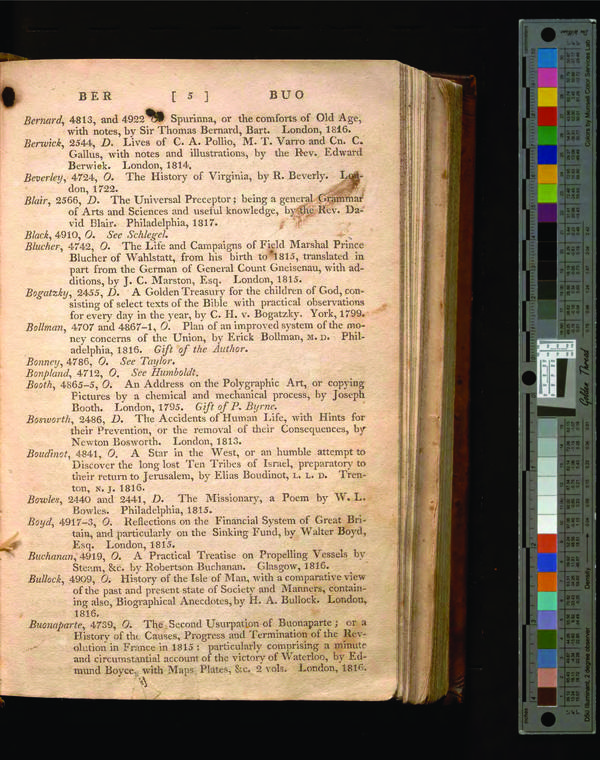 BER [ 5 ] BUO
Bernard, 4813, and 4922 Spurinna, or the comforts of Old Age,
with notes, by Sir Thomas Bernard, Bart. London, 1816.
Berwick, 2544, D. Lives of C. A. Pollio, M. T. Varro and Cn. C.
Gallus, with notes and illustrations, by the Rev. Edward
Berwick. London, 1814.
Beverley, 4724, O. The History of Virginia, by R. Beverly. Lon-
don, 1722.
Blair, 2566, D. The Universal Preceptor; being a general Grammar
of Arts and Sciences and useful knowledge, by the Rev. Da-
vid Blair. Philadelphia, 1817.
Black, 4910, O. See Schlegel.
Blucher, 4742, O. The Life and Campaigns of Field Marshal Prince
Blucher of Wahlstatt, from his birth to 1815, translated in
part from the German of General Count Gneisenau, with ad-
ditions, by J. C. Marston, Esq. London, 1815.
Bogatzky, 2455, D. A Golden Treasury for the children of God, con-
sisting of select texts of the Bible with practical observations
for every day in the year, by C. H. v. Bogatzky. York, 1799.
Bollman, 4707 and 4867-1, O. Plan of an improved system of the mo-
ney concerns of the Union, by Erick Bollman, M. D. Phil-
adelphia, 1816. Gift of the Author.
Bonney, 4786, O. See Taylor.
Bonpland, 4712, O. See Humboldt.
Booth, 4865-5, O. An Address on the Polygraphic Art, or copying
Pictures by a chemical and mechanical process, by Joseph
Booth. London, 1795. Gift of P. Byrne.
Bosworth, 2486, D. The Accidents of Human Life, with Hints for
their Prevention, or the removal of their Consequences, by
Newton Bosworth. London, 1813.
Boudinot, 4841, O. A Star in the West, or an humble attempt to
Discover the long lost Ten Tribes of Israel, preparatory to
their return to Jerusalem, by Elias Boudinot, L. L. D. Tren-
ton, N. J. 1816.
Bowles, 2440 and 2441, D. The Missionary, a Poem by W. L.
Bowles. Philadelphia, 1815.
Boyd, 4917-3, O. Reflections on the Financial System of Great Bri-
tain, and particularly on the Sinking Fund, by Walter Boyd,
Esq. London, 1815.
Buchanan, 4919, O. A Practical Treatise on Propelling Vessels by
Steam, &c. by Robertson Buchanan. Glasgow, 1816.
Bullock, 4909, O. History of the Isle of Man, with a comparative view
of the past and present state of Society and Manners, contain-
ing also, Biographical Anecdotes, by H. A. Bullock. London,
1816.
Buonaparte, 4739, O. The Second Usurpation of Buonaparte; or a
History of the Causes, Progress and Termination of the Rev-
olution in France in 1815: particularly comprising a minute
and circumstantial account of the victory of Waterloo, by Ed-
mund Boyce, with Maps, Plates, &c. 2 vols. London, 1816.
Golden Thread